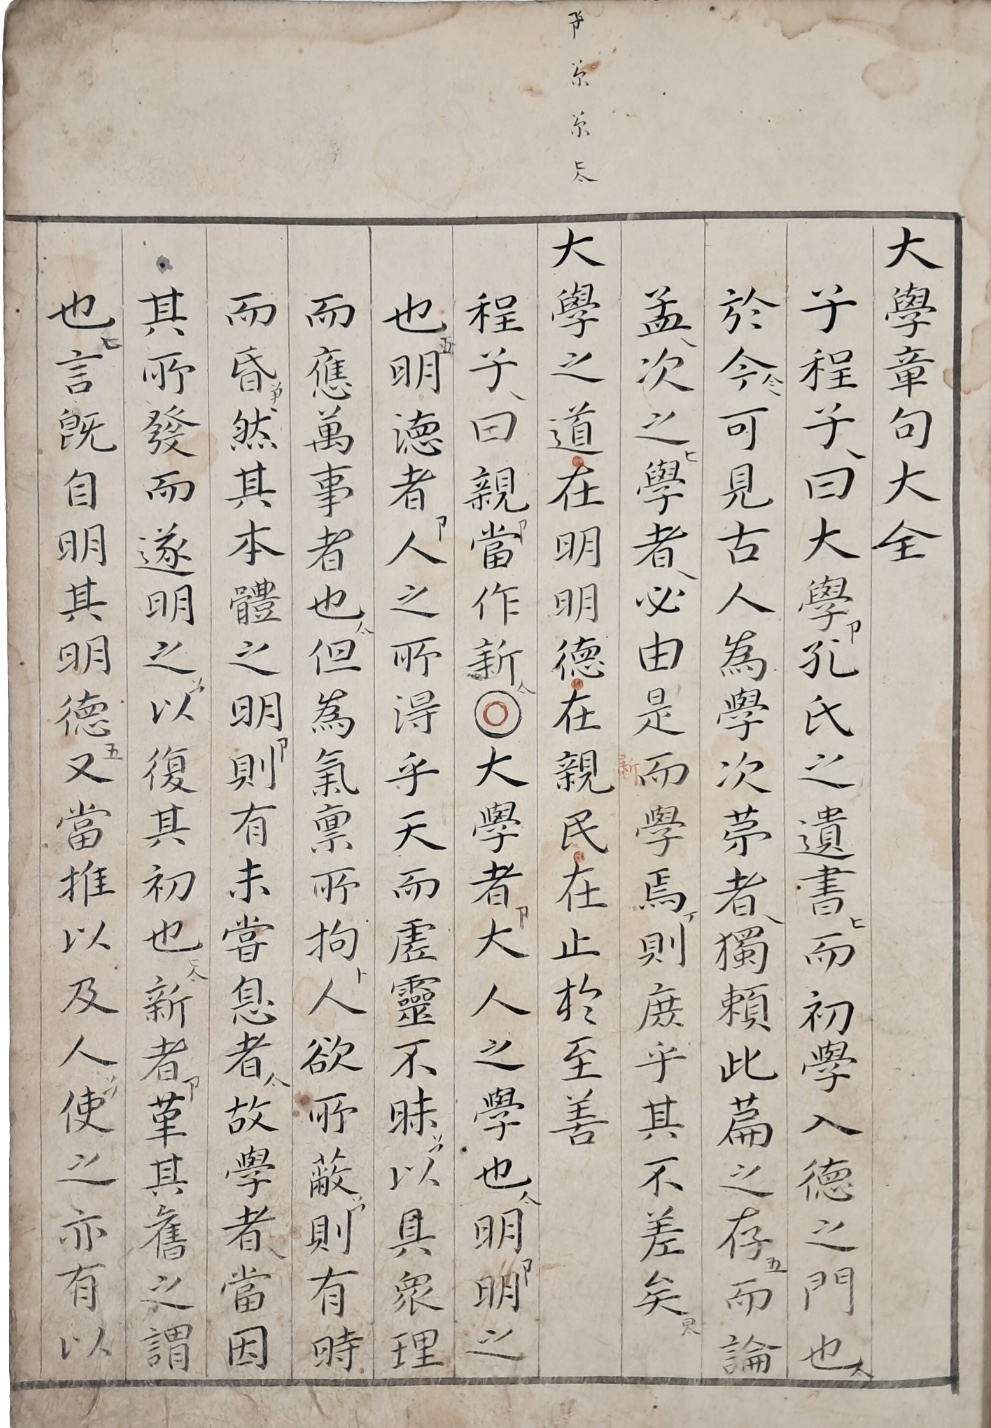 大學章句大全
子程子曰大學孔氏之遺書而初學入德之門也
於今可見古人為學次苐者獨頼此萹之存而論
孟次之學者必由是而學焉則庻乎其不差矣
大學之道在明明德在親民在止於至善
新
程子曰親當作新◎大學者大人之學也明明之
也明德者人之所得乎天而虗靈不昧以具衆理
而應萬事者也但為氣禀所拘人欲所蔽則有時
而昏然其本體之明則有未甞息者故學者當因
其所發而遂明之以復其初也新者革其舊之謂
也言既自明其明德又當推以及人使之亦有以